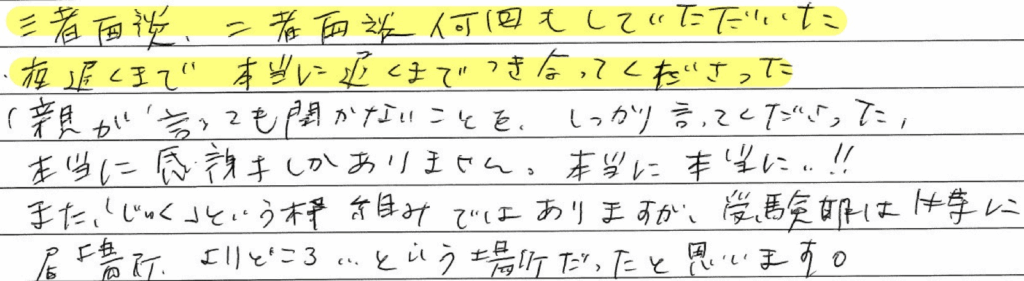 三者面談、二者面談 何回もしていただいた
夜遅くまで 本当に遅くまでつき合ってくださった
(親が言っても聞かないことを、しっかり言ってくださった,
本当に感謝しかありません。本当に本当に..!!
また、「じゅく」という枠組みではありますが、受験期は
居場所、よりどころ…という場所だったと思いいます。